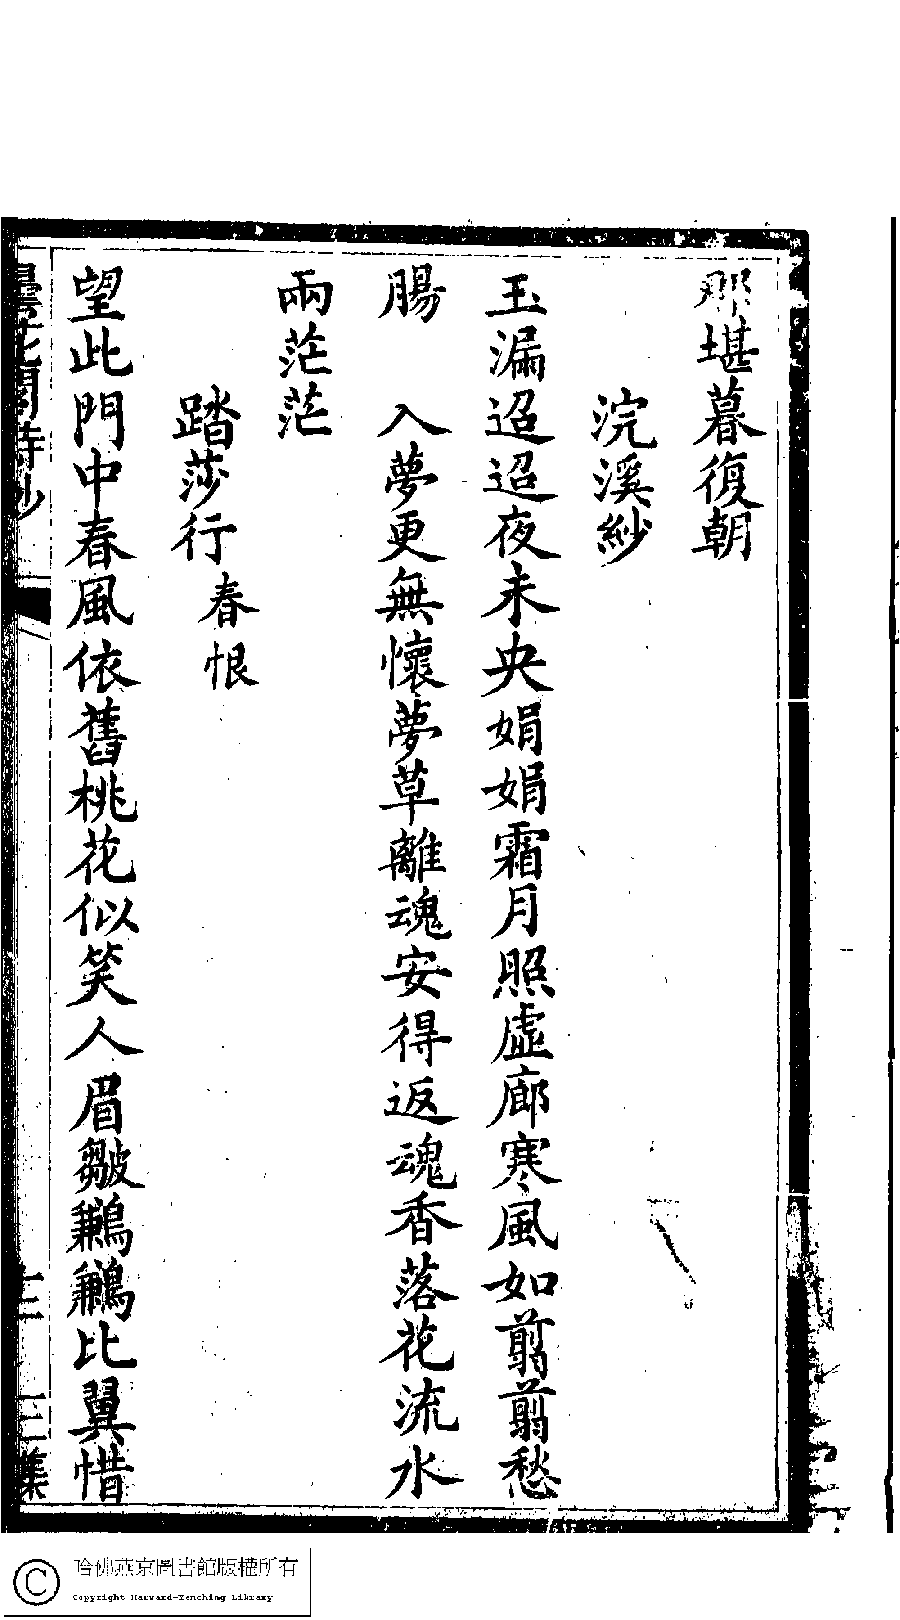 那堪暮復朝
浣溪紗
玉漏迢迢夜未央娟娟霜月照虛廊寒風如翦翦愁
腸　入夢更無懷夢草離魂安得返魂香落花流水
兩茫茫
踏莎行春恨
望此門中春風依舊桃花似笑人眉皺鶼鶼比翼惜
曇花閣詩鈔
二集
哈佛燕京圖書館版權所有
Copyright Harvard-Yenching Library